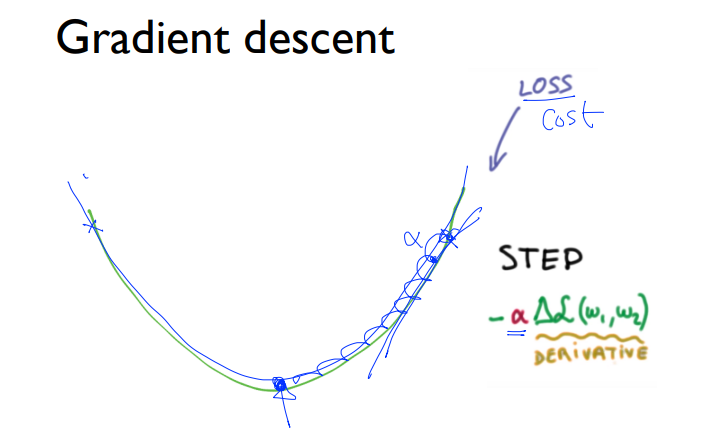 Gradient descent
LOSS
Cost
α
STEP
- α Δℒ(ω₁,ω₂)
DERIVATIVE